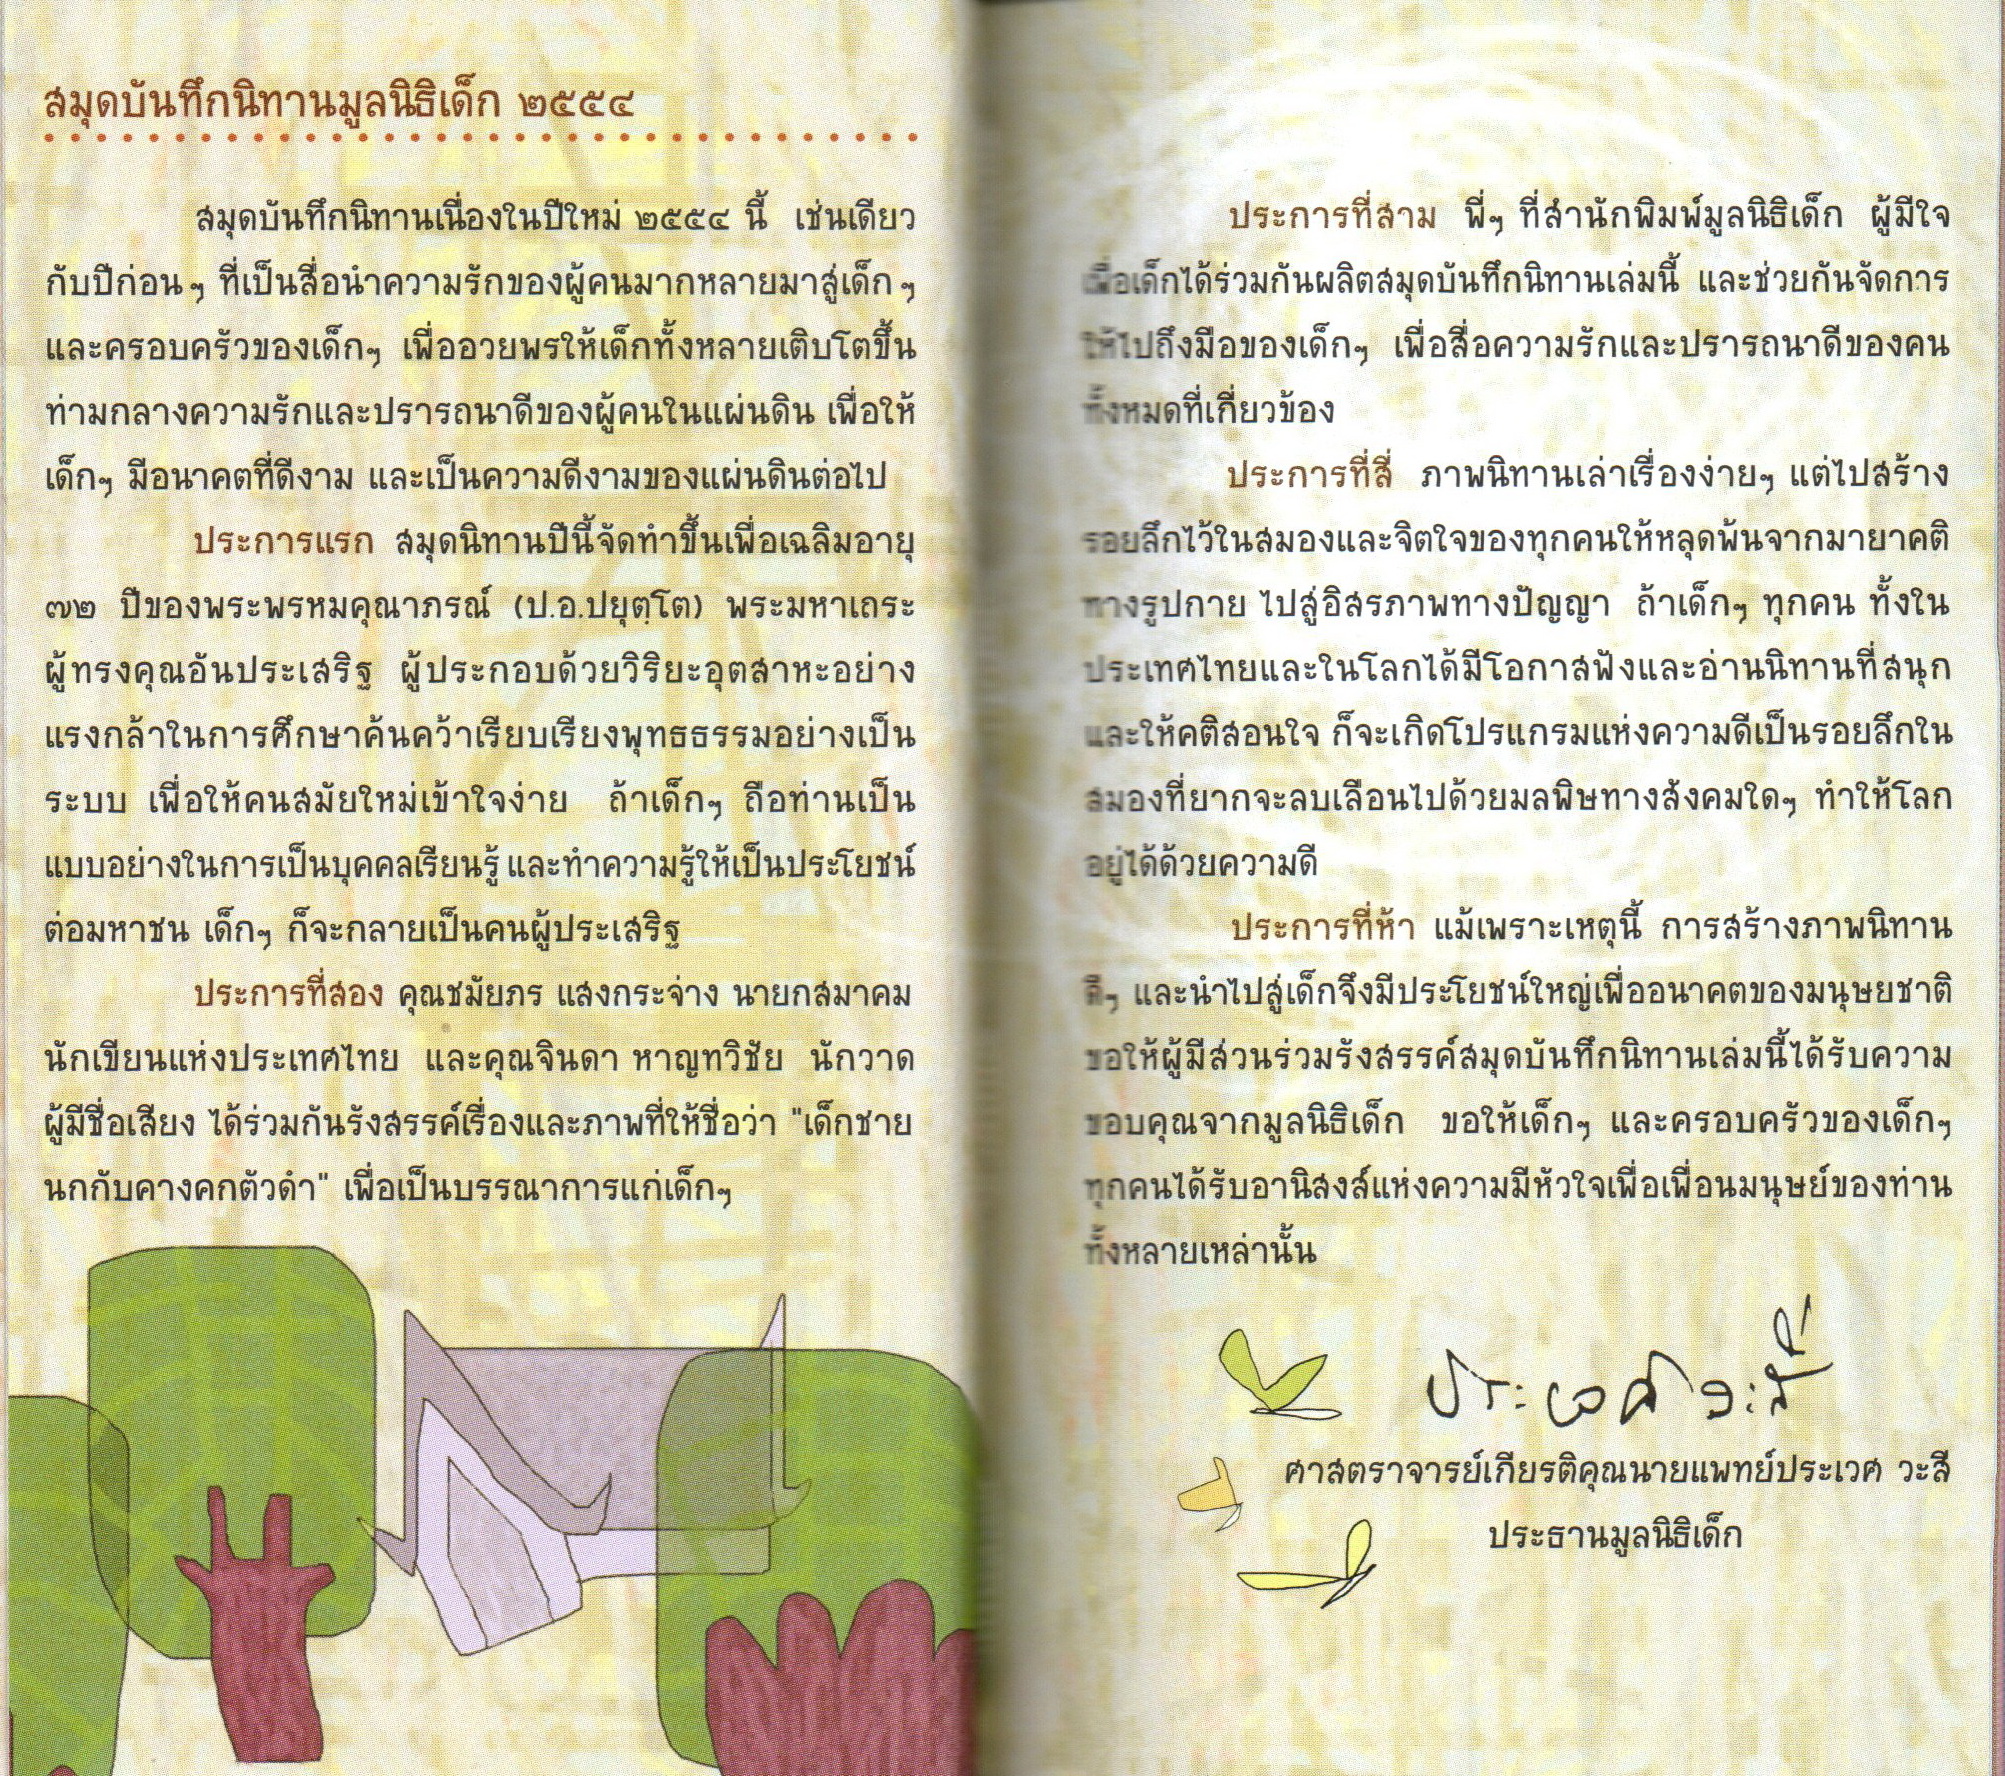 สมุดบันทึกนิทานมูลนิธิเด็ก ๒๕๕๔
สมุดบันทึกนิทานเนื่องในปีใหม่ ๒๕๕๔ นี้ เช่นเดียว
กับปีก่อนๆ ที่เป็นสื่อนำความรักของผู้คนมากหลายมาสู่เด็กๆ
และครอบครัวของเด็กๆ เพื่ออวยพรให้เด็กทั้งหลายเติบโตขึ้น
ท่ามกลางความรักและปรารถนาดีของผู้คนในแผ่นดิน เพื่อให้
เด็กๆ มีอนาคตที่ดีงาม และเป็นความดีงามของแผ่นดินต่อไป
ประการแรก สมุดนิทานปีนี้จัดทำขึ้นเพื่อเฉลิมอายุ
๗๒ ปีของพระพรหมคุณาภรณ์ (ป.อ.ปยุตฺโต) พระมหาเถระ
ผู้ทรงคุณอันประเสริฐ ผู้ประกอบด้วยวิริยะอุตสาหะอย่าง
แรงกล้าในการศึกษาค้นคว้าเรียบเรียงพุทธธรรมอย่างเป็น
ระบบ เพื่อให้คนสมัยใหม่เข้าใจง่าย ถ้าเด็กๆ ถือท่านเป็น
แบบอย่างในการเป็นบุคคลเรียนรู้ และทำความรู้ให้เป็นประโยชน์
ต่อมหาชน เด็กๆ ก็จะกลายเป็นคนผู้ประเสริฐ
ประการที่สอง คุณชมัยภร แสงกระจ่าง นายกสมาคม
นักเขียนแห่งประเทศไทย และคุณจินดา หาญทวิชัย นักวาด
ผู้มีชื่อเสียง ได้ร่วมกันรังสรรค์เรื่องและภาพที่ให้ชื่อว่า "เด็กชาย
นกกับคางคกตัวดำ" เพื่อเป็นบรรณาการแก่เด็กๆ
ประการที่สาม พี่ๆ ที่สำนักพิมพ์มูลนิธิเด็ก ผู้มีใจ
เพื่อเด็กได้ร่วมกันผลิตสมุดบันทึกนิทานเล่มนี้ และช่วยกันจัดการ
ให้ไปถึงมือของเด็กๆ เพื่อสื่อความรักและปรารถนาดีของคน
ทั้งหมดที่เกี่ยวข้อง
ประการที่สี่ ภาพนิทานเล่าเรื่องง่ายๆ แต่ไปสร้าง
รอยลึกไว้ในสมองและจิตใจของทุกคนให้หลุดพ้นจากมายาคติ
ทางรูปกาย ไปสู่อิสรภาพทางปัญญา ถ้าเด็กๆ ทุกคน ทั้งใน
ประเทศไทยและในโลกได้มีโอกาสฟังและอ่านนิทานที่สนุก
และให้คติสอนใจ ก็จะเกิดโปรแกรมแห่งความดีเป็นรอยลึกใน
สมองที่ยากจะลบเลือนไปด้วยมลพิษทางสังคมใดๆ ทำให้โลก
อยู่ได้ด้วยความดี
ประการที่ห้า แม้เพราะเหตุนี้ การสร้างภาพนิทาน
ดีๆ และนำไปสู่เด็กจึงมีประโยชน์ใหญ่เพื่ออนาคตของมนุษยชาติ
ขอให้ผู้มีส่วนร่วมรังสรรค์สมุดบันทึกนิทานเล่มนี้ได้รับความ
ขอบคุณจากมูลนิธิเด็ก ขอให้เด็กๆ และครอบครัวของเด็กๆ
ทุกคนได้รับอานิสงส์แห่งความมีหัวใจเพื่อเพื่อนมนุษย์ของท่าน
ทั้งหลายเหล่านั้น
ประเวศ วะสี
ศาสตราจารย์เกียรติคุณนายแพทย์ประเวศ วะสี
ประธานมูลนิธิเด็ก